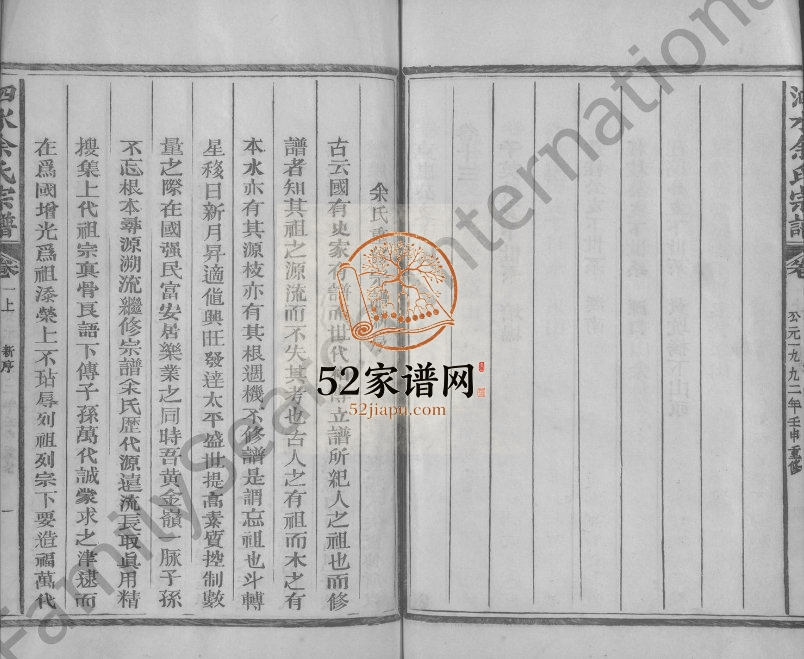 水余氏宗譜
卷
公元一九九二年壬申重修
余氏重
古云國有史家有譜
立譜所紀人之祖也而修
譜者知其祖之源流而不失其
也古人之有祖而木之有
本水亦有其源枝亦有其根遇機不修譜是謂忘祖也斗轉
星移日新月昇適値興旺發達太平盛世提高素質控制數
量之際在國强民富安居樂業之同時吾黃金嶺一脈子孫
不忘根本尋源溯流繼修宗譜余氏歷代源遠流長取眞用精
搜集上代祖宗眞骨良語下傳子孫萬代誠蒙求之津逮而
在爲國增光爲祖添榮上不玷辱列祖列宗下要造福萬代
泗水余氏宗譜
卷一上
新序
一
52家谱网
52jiapu.com
FamilySearch International